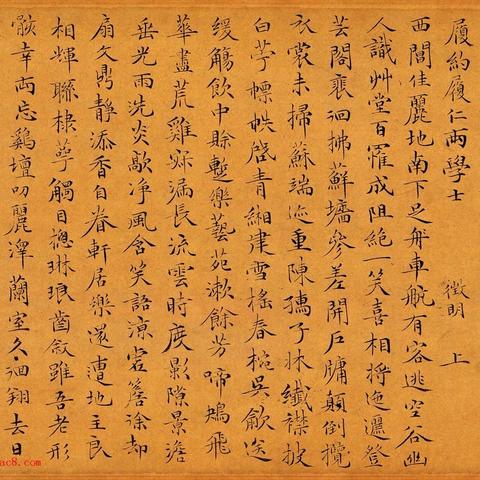 履約履仁兩學士　徵明　上
西閶佳麗地南下足舟車航有客逃空谷幽
人識艸堂百罹成阻絕一笑喜相將迤邐登
芸閣裵洄拂蘚墻參差開戶牖顛倒攬
衣裳未掃蘇端迹重陳孺子牀纖襟披
白苧幖帙啓青緗建雪槎春椀吳歈送
緩觴飲中賒蹔樂藝苑漱餘芳啼鴂飛
華盡荒雞漏長流雲時度影隙景澹
垂光雨洗炎歊凈風含笑語涼宕簷涂却
扇久鼎靜添香自眷軒居樂還遭地主良
相輝聯棣萼觸目摠琳琅齒敘雖吾老形
骸幸両忘鷄壇叨麗澤蘭室久洄翔去日
ac8.com